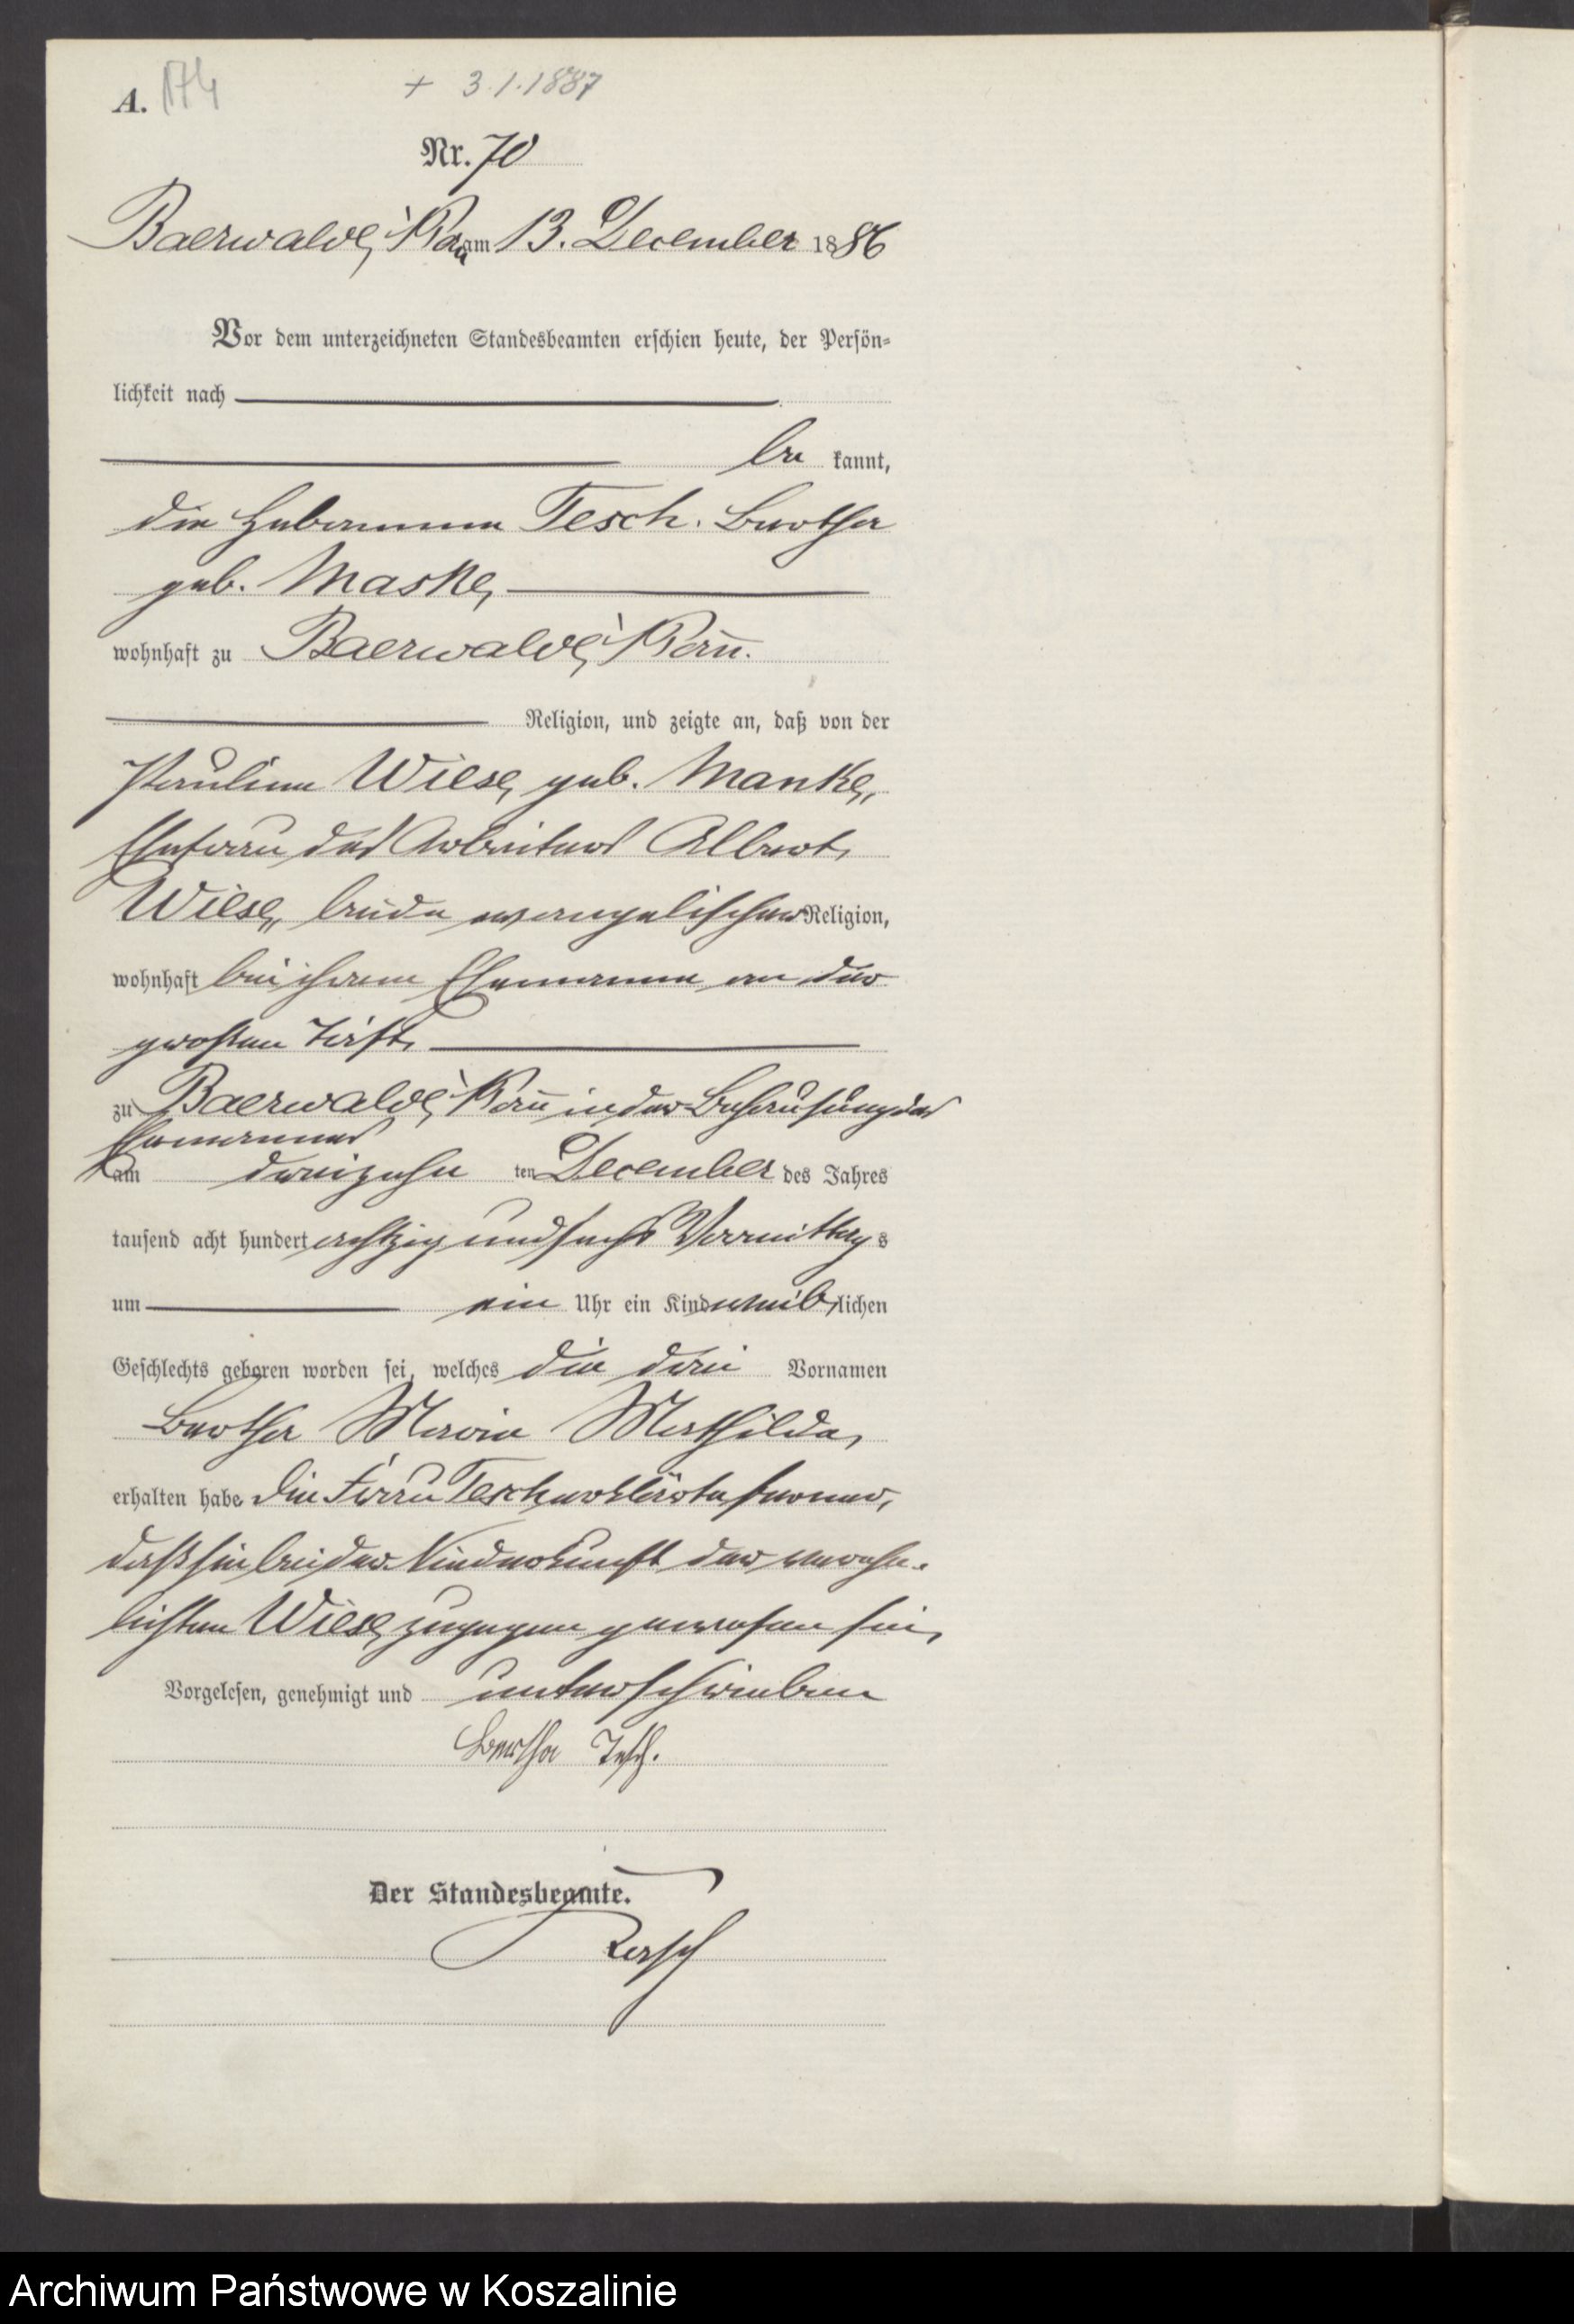 A. 174
+ 3.1.1887
Nr. 70
Baerwalde, Pom am 13. December 1886
Vor dem unterzeichneten Standesbeamten erschien heute, der Persön-
lichkeit nach
be kannt,
die Hebamme Tesch, Bertha
geb. Maske,
wohnhaft zu Baerwalde, Pom.
Religion, und zeigte an, daß von der
Pauline Wiese, geb. Manke,
Ehefrau des Arbeiters Albert
Wiese, beide evangelischer Religion,
wohnhaft bei ihrem Ehemanne an der
großen Trift,
zu Baerwalde, Pom in der Behausung des
Ehemannes
am dreizehn ten December des Jahres
tausend acht hundert achtzig und sechs Vormittag s
um ein Uhr ein Kind weib lichen
Geschlechts geboren worden sei, welches die drei Vornamen
Bertha Marie Mathilde,
erhalten habe. Die Frau Tesch erklärte ferner,
daß sie bei der Niederkunft der verehe-
lichten Wiese zugegen gewesen sei,
Vorgelesen, genehmigt und unterschrieben
Bertha Tesch.
Der Standesbeamte.
Archiwum Państwowe w Koszalinie